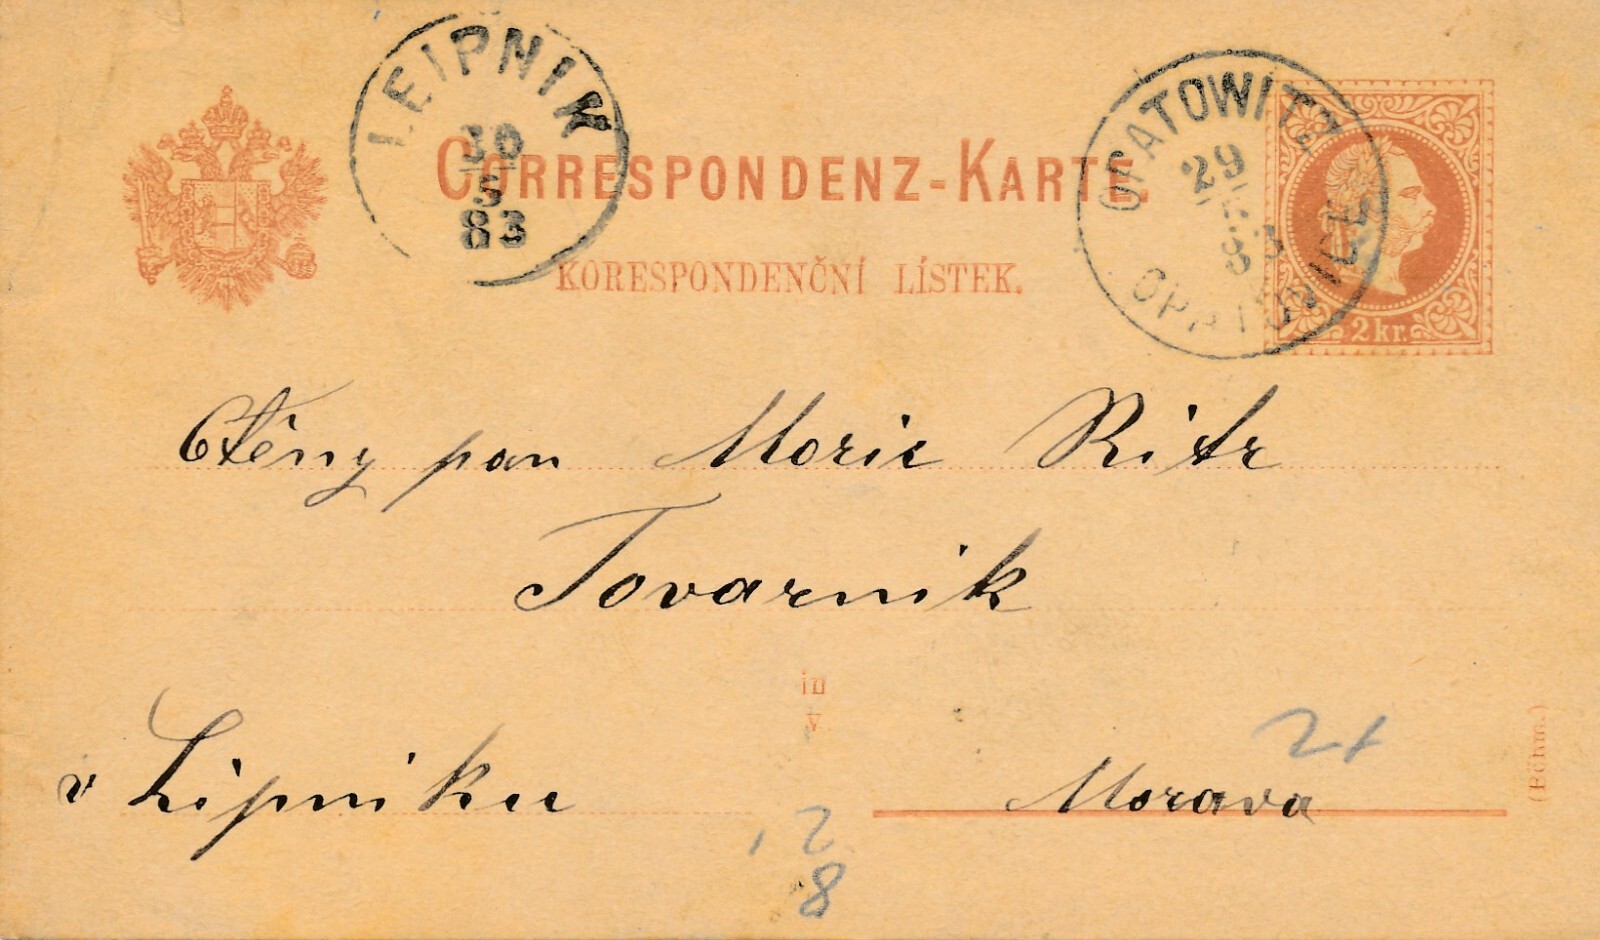 LEIPNIK
30
5
83
CORRESPONDENZ-KARTE.
KORESPONDENČNÍ LÍSTEK.
OPATOWITZ
29
5
83
OPATOVICE
2 kr.
Ctěny pan Moric Ritr
Tovarnik
in
v.
v Lipniku
Morava
(Böhm.)
2
8